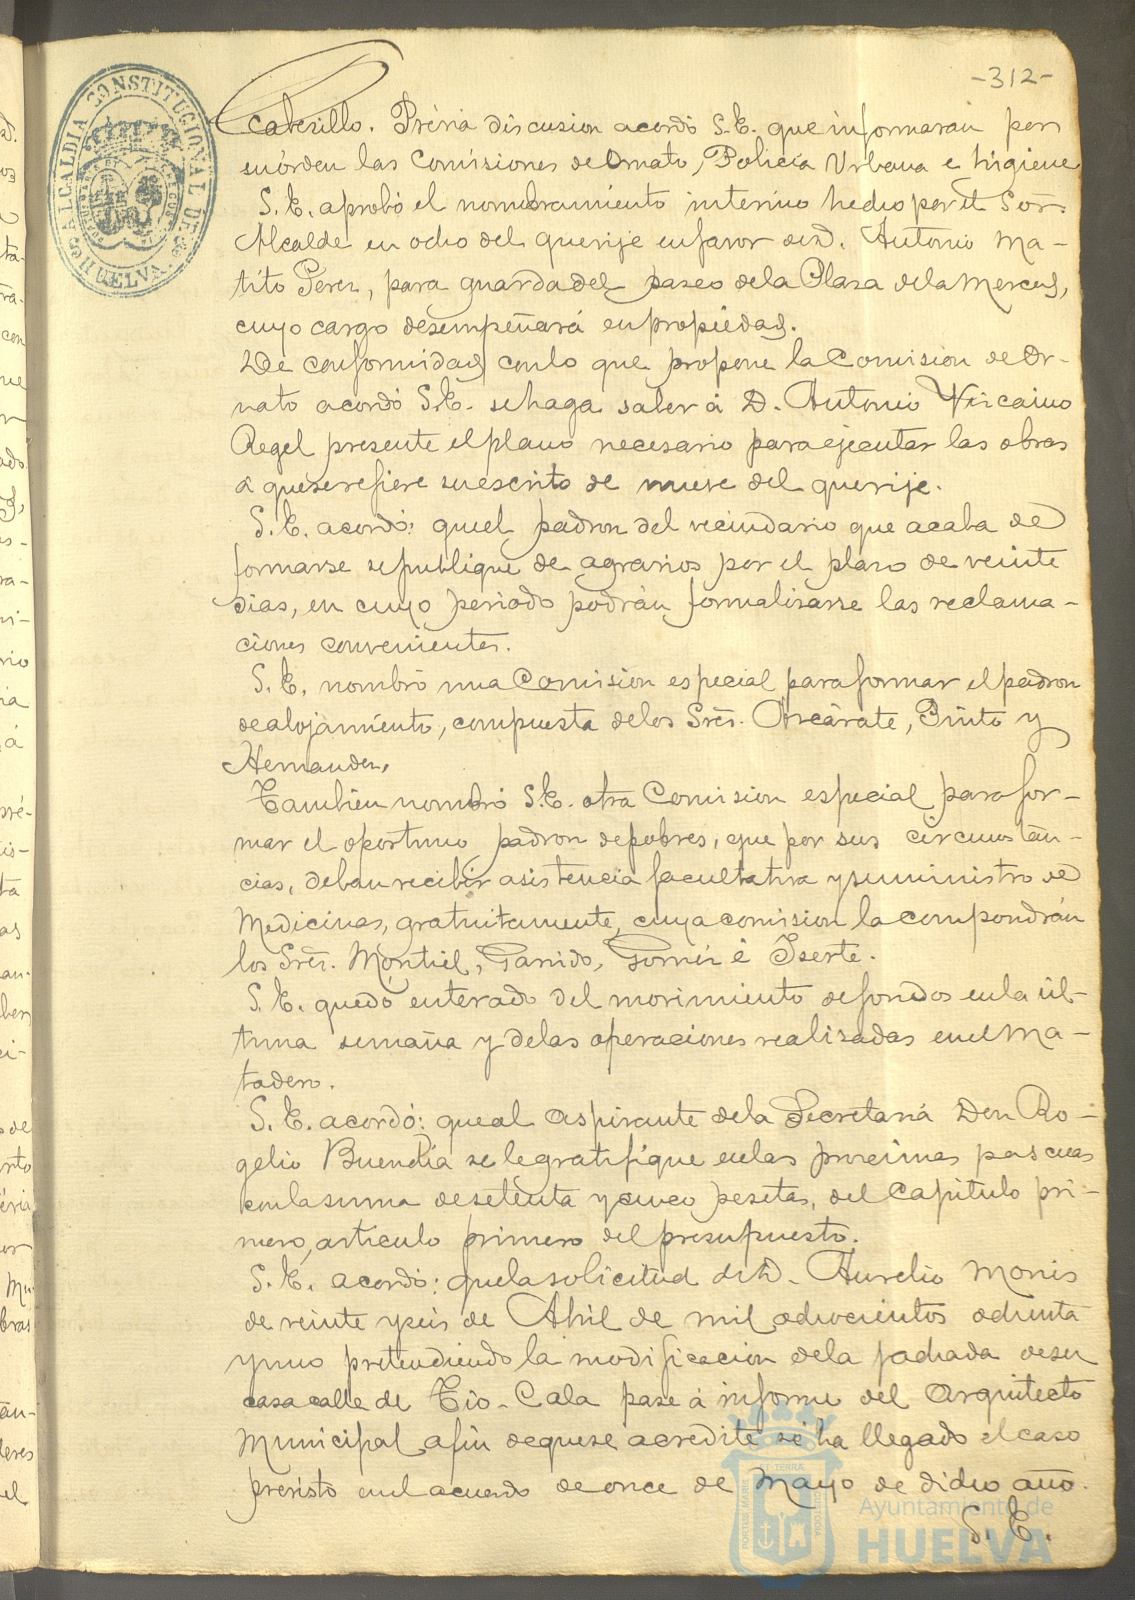 -312-
ALCALDIA CONSTITUCIONAL DE HUELVA.
Caberillo. Prévia discusion acordó S.E. que informarán por
su órden las Comisiones de Ornato, Policía Urbana e higiene
S.E. aprobó el nombramiento interino hecho por el Sor.
Alcalde en ocho del que rije en favor de D. Antonio Ma-
tito Perez, para guarda del paseo de la Plaza de la Merced,
cuyo cargo desempeñará en propiedad.
De conformidad con lo que propone la Comision de Or-
nato acordó S.E. se haga saber á D. Antonio Vizcaino
Regel presente el plano necesario para ejecutar las obras
á que se refiere su escrito de nueve del que rije.
S.E. acordó: que el padron del vecindario que acaba de
formarse se publique de agravios por el plazo de veinte
dias, en cuyo periodo podrán formalizarse las reclama-
ciones convenientes.
S.E. nombró una Comision especial para formar el padron
de alojamiento, compuesta de los Sres. Azcárate, Pinto y
Hernandez.
Tambien nombró S.E. otra Comision especial para for-
mar el oportuno padron de pobres, que por sus circunstan-
cias, deban recibir asistencia facultativa y suministro de
Medicinas, gratuitamente, cuya comision la compondrán
los Sres. Montiel, Garrido, Gomez é Iserte.
S.E. quedó enterado del movimiento de fondos en la úl-
tima semana y de las operaciones realizadas en el Ma-
tadero.
S.E. acordó: que al aspirante de la Secretaria Don Ro-
gelio Buendía se le gratifique en las procsimas pascuas
con la suma de setenta y cinco pesetas, del Capitulo pri-
mero, articulo primero del presupuesto.
S.E. acordó: que la solicitud de D. Aurelio Monis
de veinte y seis de Abril de mil ochocientos ochenta
y uno pretendiendo la modificacion de la fachada de su
casa calle de Tio-Cala pase á informe del Arquitecto
Municipal a fin de que se acredite si ha llegado el caso
previsto en el acuerdo de once de Mayo de dicho año.
S.E.
Ayuntamiento de
HUELVA